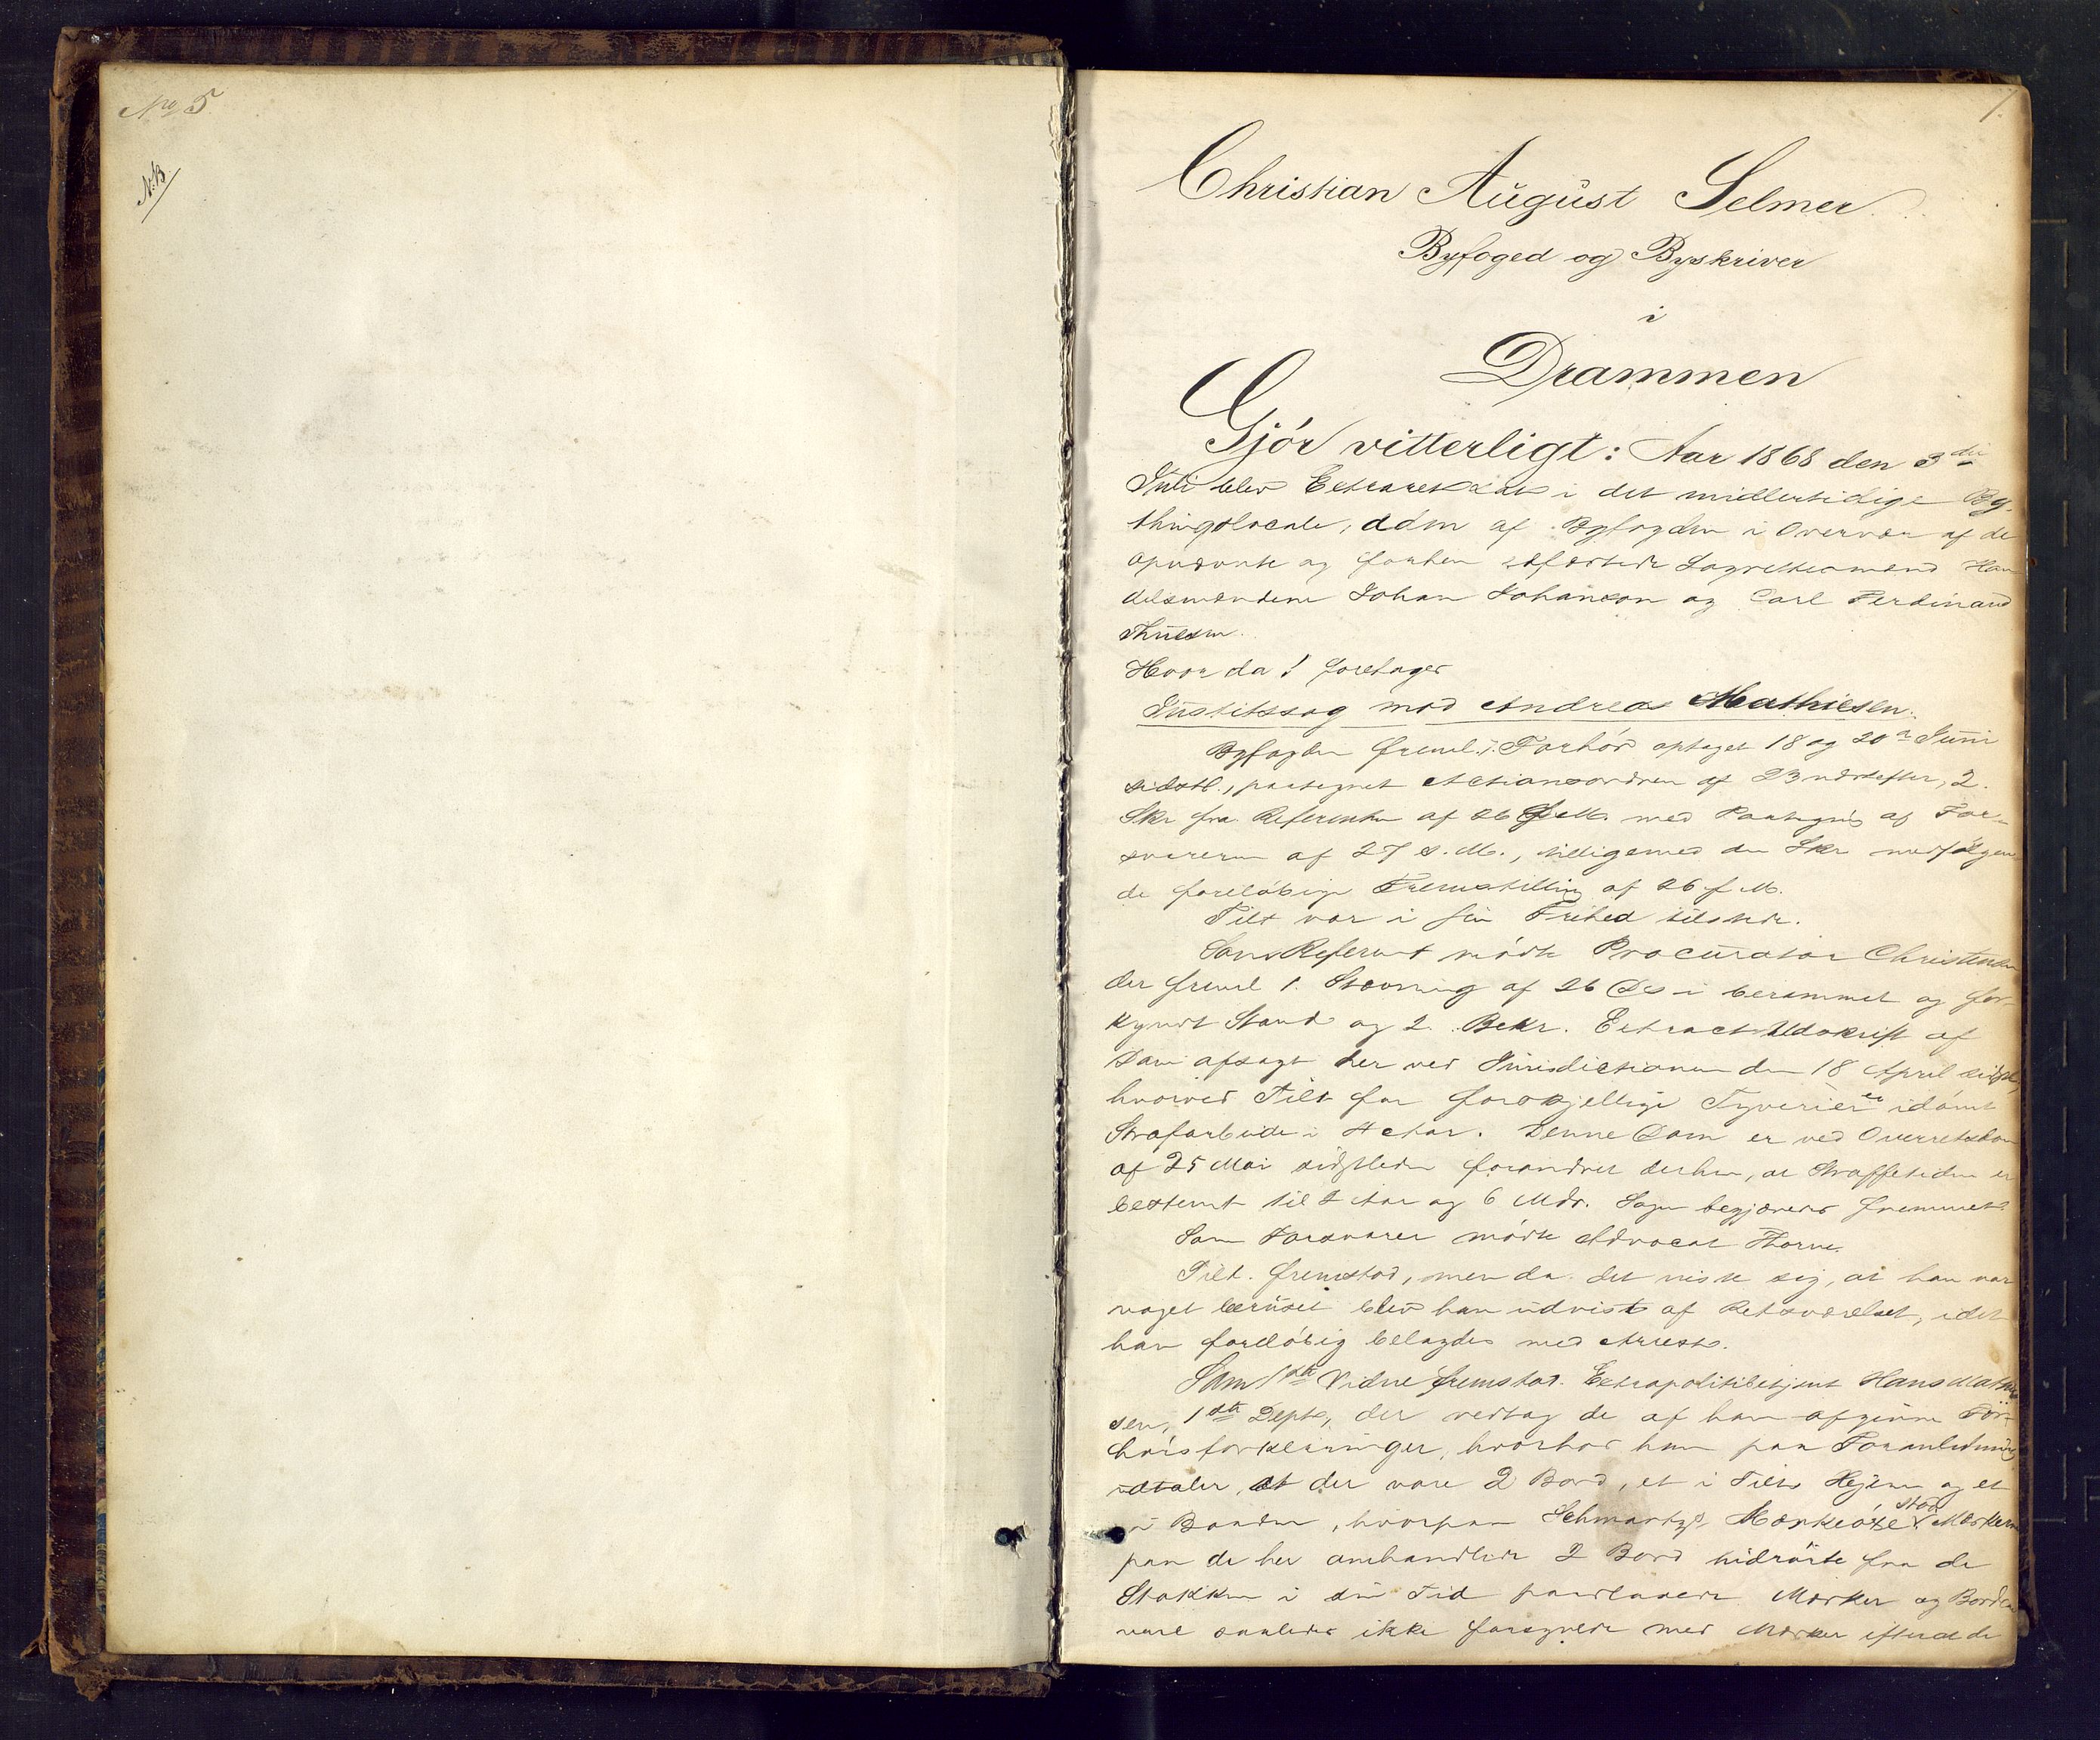 No 5
NB
1.
Christian August Selmer
Byfoged og Byskriver
i
Drammen
Gjör vitterligt: Aar 1868 den 3die
Juli blev Extraret sat i det midlertidige By-
thingslocale, adm af Byfogden i Overvær af de
opnævnte og forhen edfæstede Lagrettesmænd Han
delsmændene Johan Johanson og Carl Ferdinand
Thuesen.
Hvor da! foretages
Justitssag mod Andreas Mathiesen.
Byfogden freml. 1. Forhör optaget 18 og 20de Juni
sidstl., paategnet Actionsordren af 23 næstefter, 2.
Skr fra Referenten af 26 f. M. med Paategn af For-
svareren af 27 s. M., tilligemed den Skr medfölgen
de foreløbige Fremstilling af 26 f M.
Tilt var i sin Frihed tilstede.
Som Referent mödte Procurator Christensen
der freml 1. Stevning af 26 Ds i berammet og for-
kyndt Stand og 2. Bekr. Extract Udskrift af
Dom afsagt her ved Jurisdictionen den 18 April sidstl,
hvorved Tilt for forskjellige Tyverier er idömt
Strafarbeide i 4 Aar. Denne Dom er ved Overretsdom
af 25 Mai sidstleden forandret derhen, at Straffetiden er
bestemt til 2 Aar og 6 Mdr. Sagen begjæredes fremmet.
Som Forsvarer mödte Advocat Thorne.
Tilt. fremstod, men da det viste sig, at han var
noget beruset blev han udvist af Retsværelset, idet
han foreløbig belagdes med Arrest.
Som 1ste Vidne fremstod Extrapolitibetjent Hans Mathie
sen, 1ste Depts, der vedtog de af ham afgivne For-
hörsforklaringer, hvorhos han paa Foranledning
udtaler, at der vare 2 Bord, et i Tilts Hjem og et
i Baaden, hvorpaa Schwartz's Mærkeöxe stod. Mærkerne
paa de her omhandlede 2 Bord hidrörte fra de
Stokken i sin Tid paaslaaede Mærker og Bordene
vare saaledes ikke forsynede med Mærker efterat de